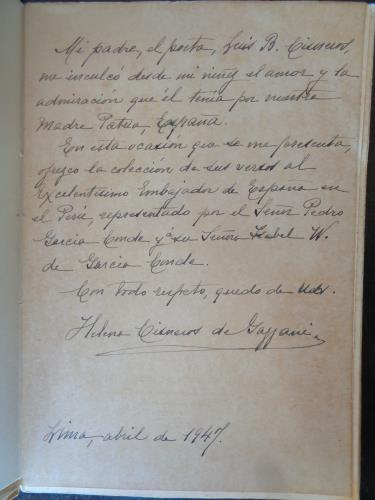 Mi padre, el poeta, Luis B. Cisneros,
me inculcó desde mi niñez el amor y la
admiración que él tenía por nuestra
Madre Patria, España.
En esta ocasión que se me presenta,
ofrezco la colección de sus versos al
Excelentísimo Embajador de España en
el Perú, representado por el Señor Pedro
García Conde y a su Señora Isabel W.
de García Conde.
Con todo respeto, quedo de Uds.
Helena Cisneros de Gazzani
Lima, abril de 1947.